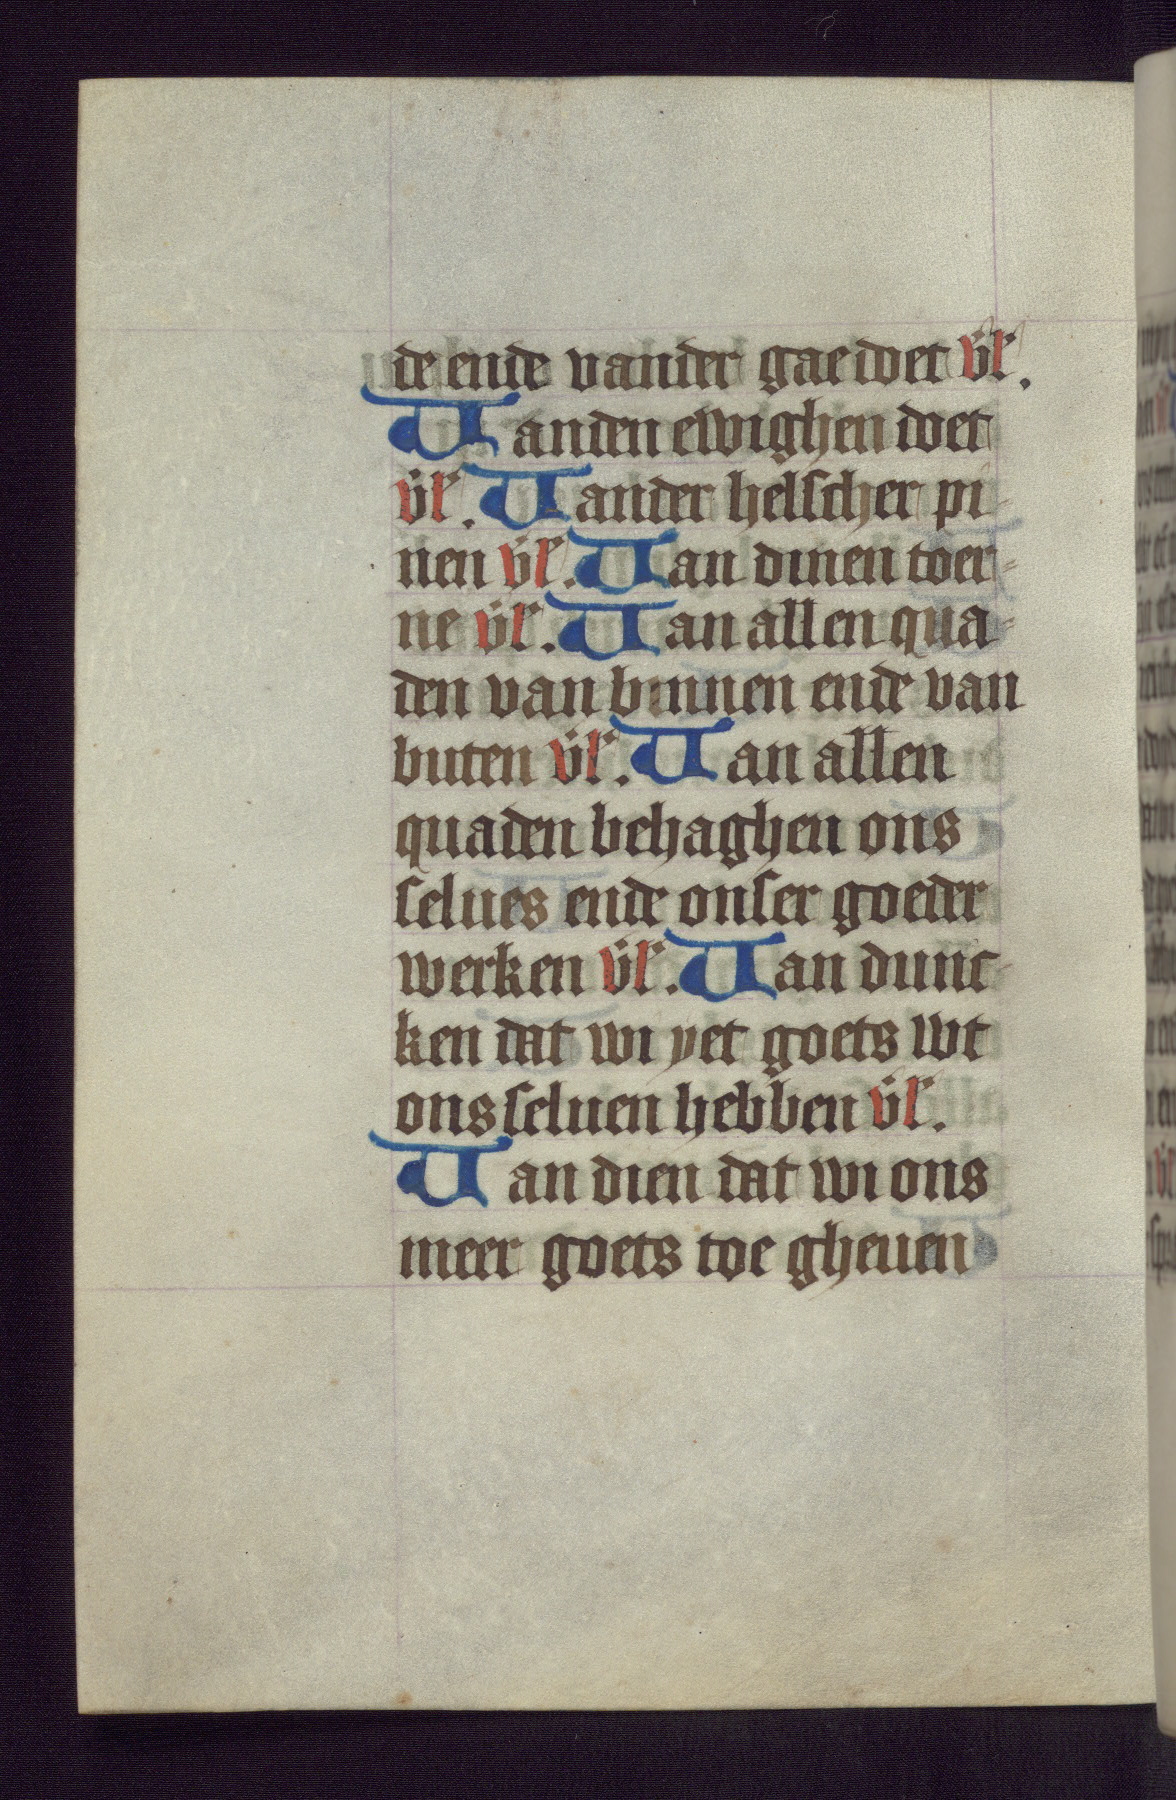 de ende vander gaedoet v̈l'.
Vanden ewighen doet
v̈l'. Vander helscher pi-
nen v̈l'. Van dinen toer-
ne v̈l'. Van allen qua-
den van binnen ende van
buten v̈l'. Van allen
quaden behaghen ons
selues ende onser goeder
werken v̈l'. Van dunc-
ken dat wi yet goets wt
ons seluen hebben v̈l'.
Van dien dat wi ons
meer goets toe gheuen